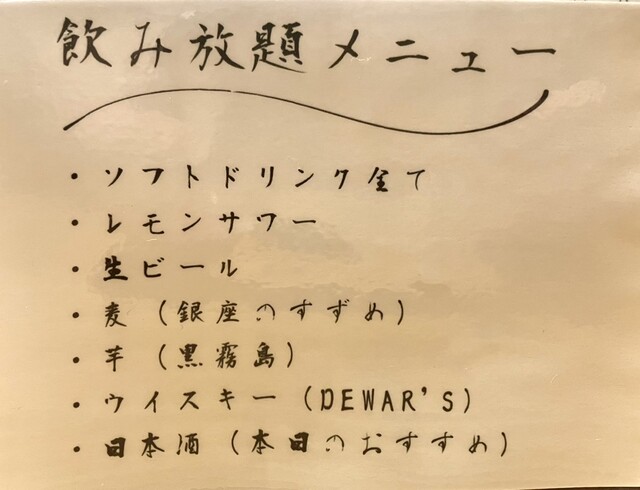 飲み放題メニュー
・ソフトドリンク全て
・レモンサワー
・生ビール
・麦(銀座のすずめ)
・芋(黒霧島)
・ウイスキー(DEWAR'S)
・日本酒(本日のおすすめ)